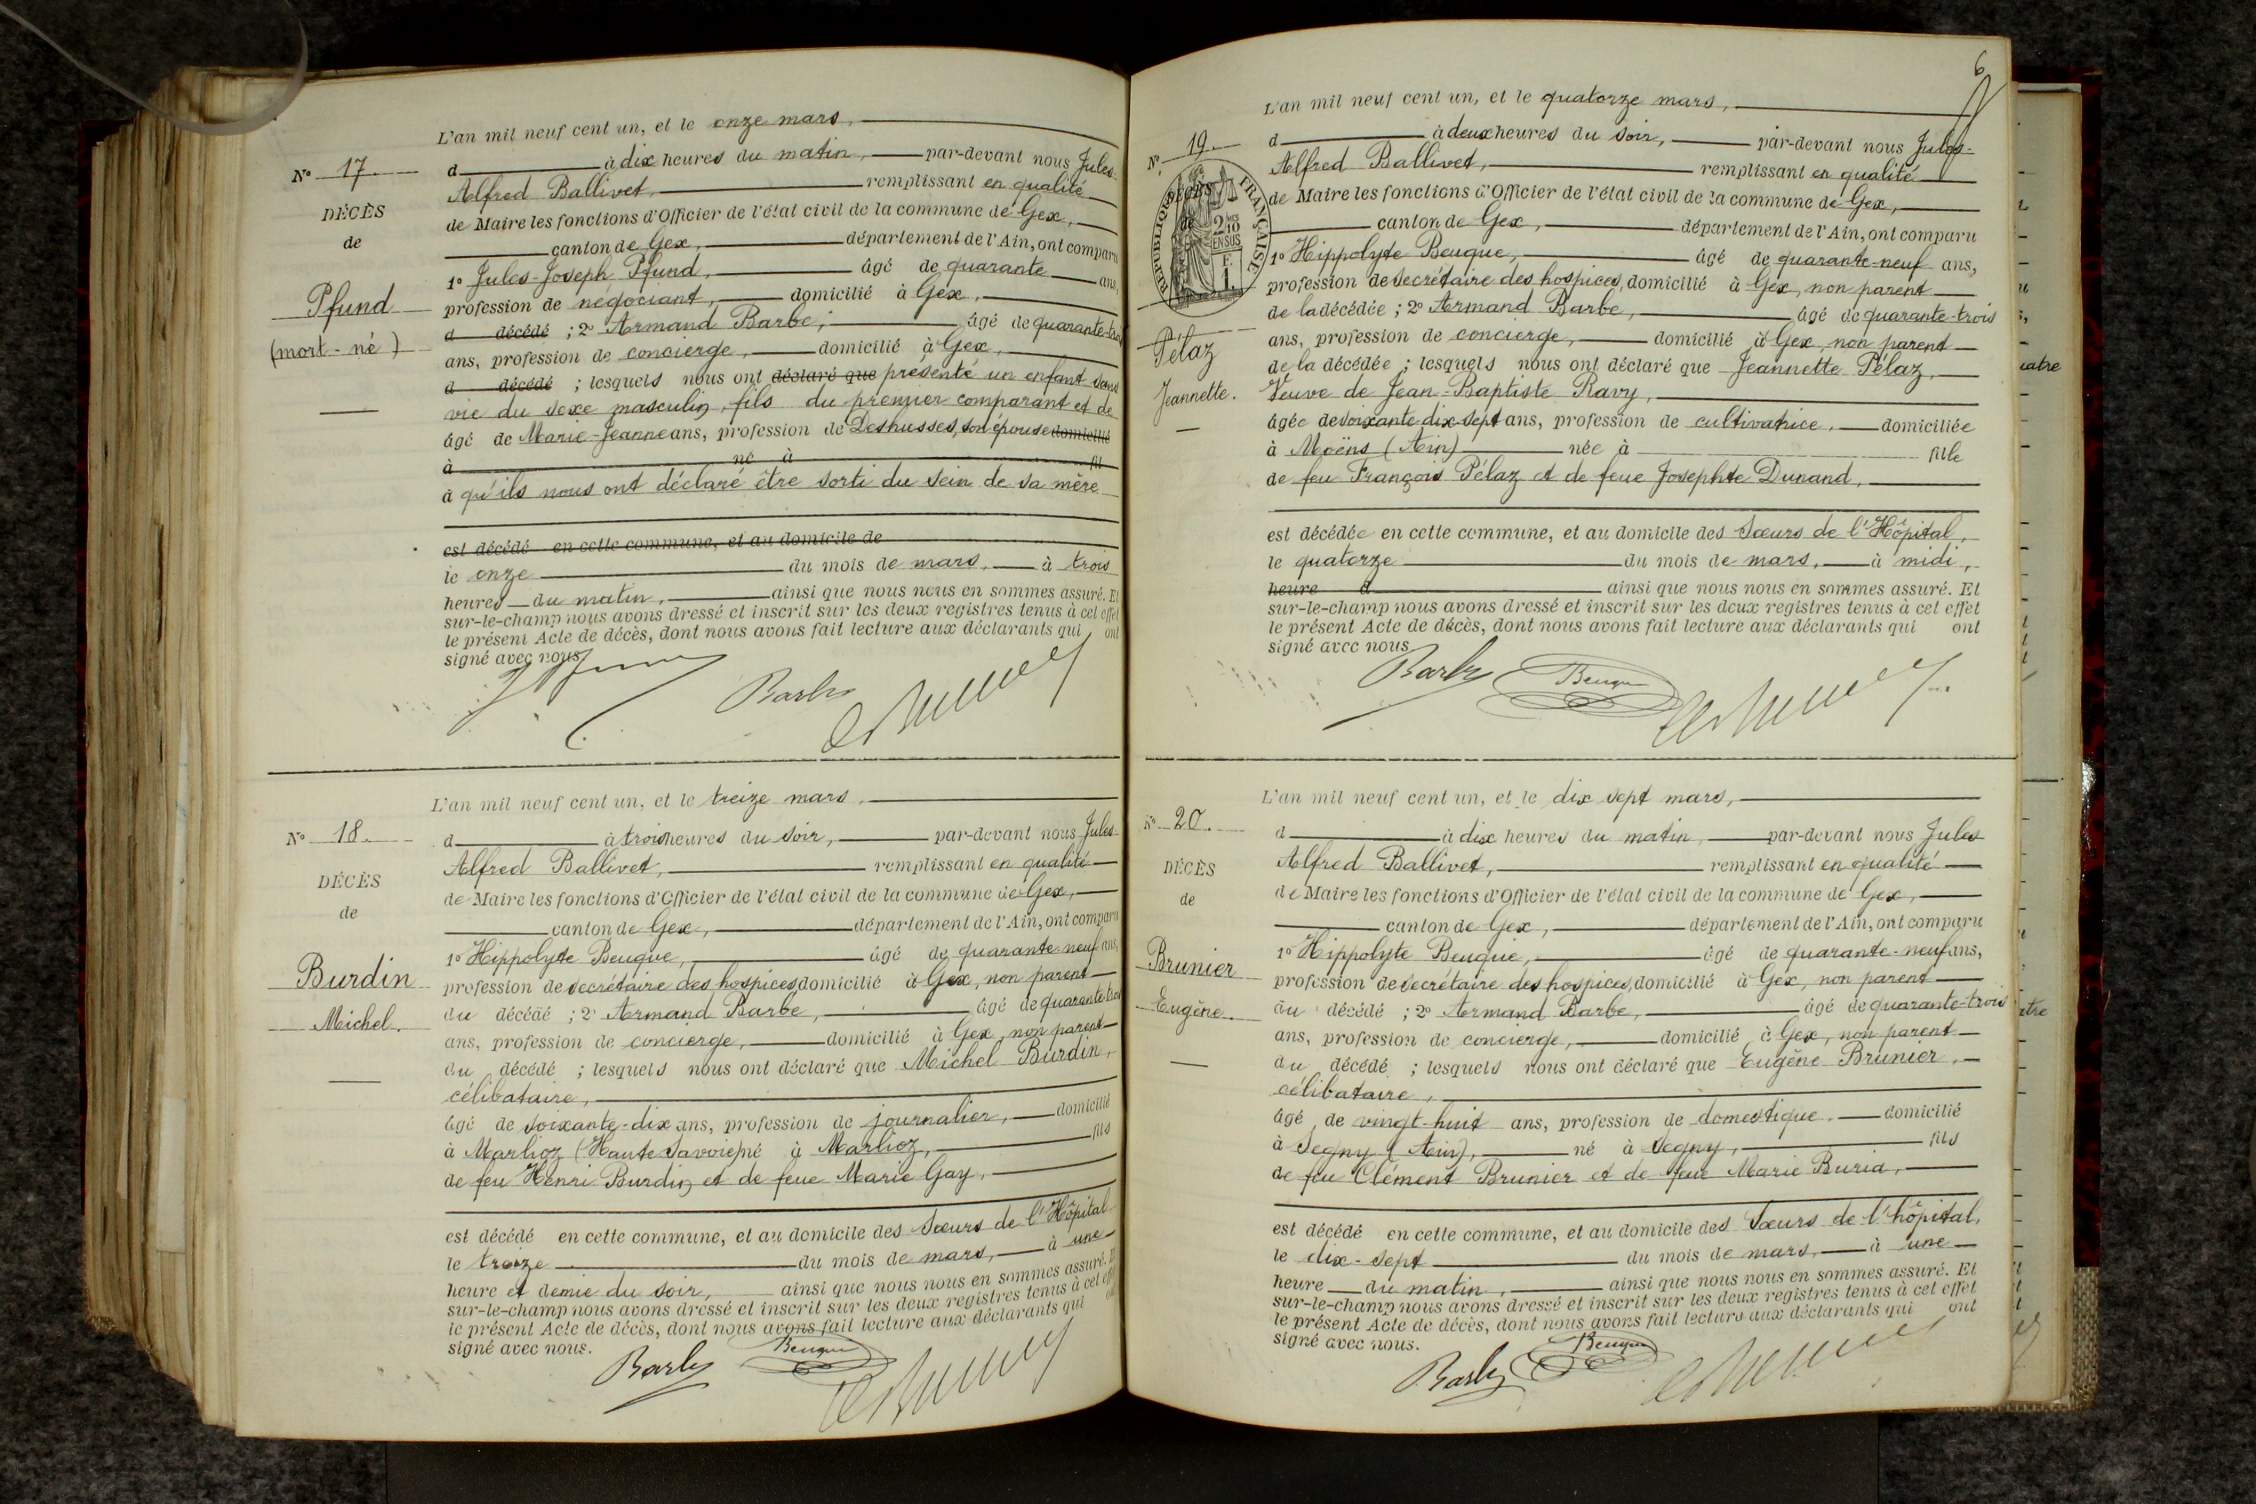 L'an mil neuf cent un, et le onze mars,
N° 17.
d à dix heures du matin, par-devant nous Jules-
Alfred Ballivet, remplissant en qualité
DÉCÈS
de Maire les fonctions d'Officier de l'état civil de la commune de Gex,
de
canton de Gex, département de l'Ain, ont comparu
1° Jules-Joseph Pfund, âgé de quarante ans,
Pfund
profession de négociant, domicilié à Gex,
(mort-né)
d décédé ; 2° Armand Barbe, âgé de quarante-trois
ans, profession de concierge, domicilié à Gex,
d décédé ; lesquels nous ont déclaré que présenté un enfant sans
vie du sexe masculin, fils du premier comparant et de
âgé de Marie-Jeanne ans, profession de Deshusses, son épouse domicilié
à né à fil
à qu'ils nous ont déclaré être sorti du sein de sa mère
est décédé en cette commune, et au domicile de
le onze du mois de mars, à trois
heures du matin, ainsi que nous nous en sommes assuré. Et
sur-le-champ nous avons dressé et inscrit sur les deux registres tenus à cet effet
le présent Acte de décès, dont nous avons fait lecture aux déclarants qui ont
signé avec nous.
Barbe
L'an mil neuf cent un, et le treize mars,
N° 18.
d à trois heures du soir, par-devant nous Jules-
Alfred Ballivet, remplissant en qualité
DÉCÈS
de Maire les fonctions d'Officier de l'état civil de la commune de Gex,
de
canton de Gex, département de l'Ain, ont comparu
1° Hippolyte Beuque, âgé de quarante-neuf ans,
Burdin
profession de secrétaire des hospices, domicilié à Gex, non parent
Michel.
du décédé ; 2° Armand Barbe, âgé de quarante-trois
ans, profession de concierge, domicilié à Gex, non parent
du décédé ; lesquels nous ont déclaré que Michel Burdin,
célibataire,
âgé de soixante-dix ans, profession de journalier, domicilié
à Marlioz (Haute Savoie) né à Marlioz, fils
de feu Henri Burdin et de feue Marie Gay,
est décédé en cette commune, et au domicile des Sœurs de l'Hôpital
le treize du mois de mars, à une
heure et demie du soir, ainsi que nous nous en sommes assuré. Et
sur-le-champ nous avons dressé et inscrit sur les deux registres tenus à cet effet
le présent Acte de décès, dont nous avons fait lecture aux déclarants qui ont
signé avec nous.
Barbe Beuque
6
L'an mil neuf cent un, et le quatorze mars,
N° 19.
d à deux heures du soir, par-devant nous Jules-
Alfred Ballivet, remplissant en qualité
RÉPUBLIQUE FRANÇAISE
2/10 EN SUS
F. 1.
DÉCÈS
de Maire les fonctions d'Officier de l'état civil de la commune de Gex,
de
canton de Gex, département de l'Ain, ont comparu
1° Hippolyte Beuque, âgé de quarante-neuf ans,
profession de secrétaire des hospices, domicilié à Gex, non parent
de la décédée ; 2° Armand Barbe, âgé de quarante-trois
Pélaz
ans, profession de concierge, domicilié à Gex, non parent
de la décédée ; lesquels nous ont déclaré que Jeannette Pélaz,
Jeannette.
Veuve de Jean-Baptiste Ravy,
âgée de soixante-dix-sept ans, profession de cultivatrice, domiciliée
à Moëns (Ain) née à fille
de feu François Pélaz et de feue Josephte Dunand,
est décédée en cette commune, et au domicile des Sœurs de l'Hôpital,
le quatorze du mois de mars, à midi,
heure d ainsi que nous nous en sommes assuré. Et
sur-le-champ nous avons dressé et inscrit sur les deux registres tenus à cet effet
le présent Acte de décès, dont nous avons fait lecture aux déclarants qui ont
signé avec nous.
Barbe Beuque
L'an mil neuf cent un, et le dix sept mars,
N° 20.
d à dix heures du matin, par-devant nous Jules
Alfred Ballivet, remplissant en qualité
DÉCÈS
de Maire les fonctions d'Officier de l'état civil de la commune de Gex,
de
canton de Gex, département de l'Ain, ont comparu
1° Hippolyte Beuque, âgé de quarante-neuf ans,
Brunier
profession de secrétaire des hospices, domicilié à Gex, non parent
Eugène.
du décédé ; 2° Armand Barbe, âgé de quarante-trois
ans, profession de concierge, domicilié à Gex, non parent
du décédé ; lesquels nous ont déclaré que Eugène Brunier,
célibataire,
âgé de vingt-huit ans, profession de domestique, domicilié
à Segny (Ain), né à Segny, fils
de feu Clément Brunier et de feue Marie Buria,
est décédé en cette commune, et au domicile des Sœurs de l'hôpital,
le dix-sept du mois de mars, à une
heure du matin, ainsi que nous nous en sommes assuré. Et
sur-le-champ nous avons dressé et inscrit sur les deux registres tenus à cet effet
le présent Acte de décès, dont nous avons fait lecture aux déclarants qui ont
signé avec nous.
Barbe Beuque